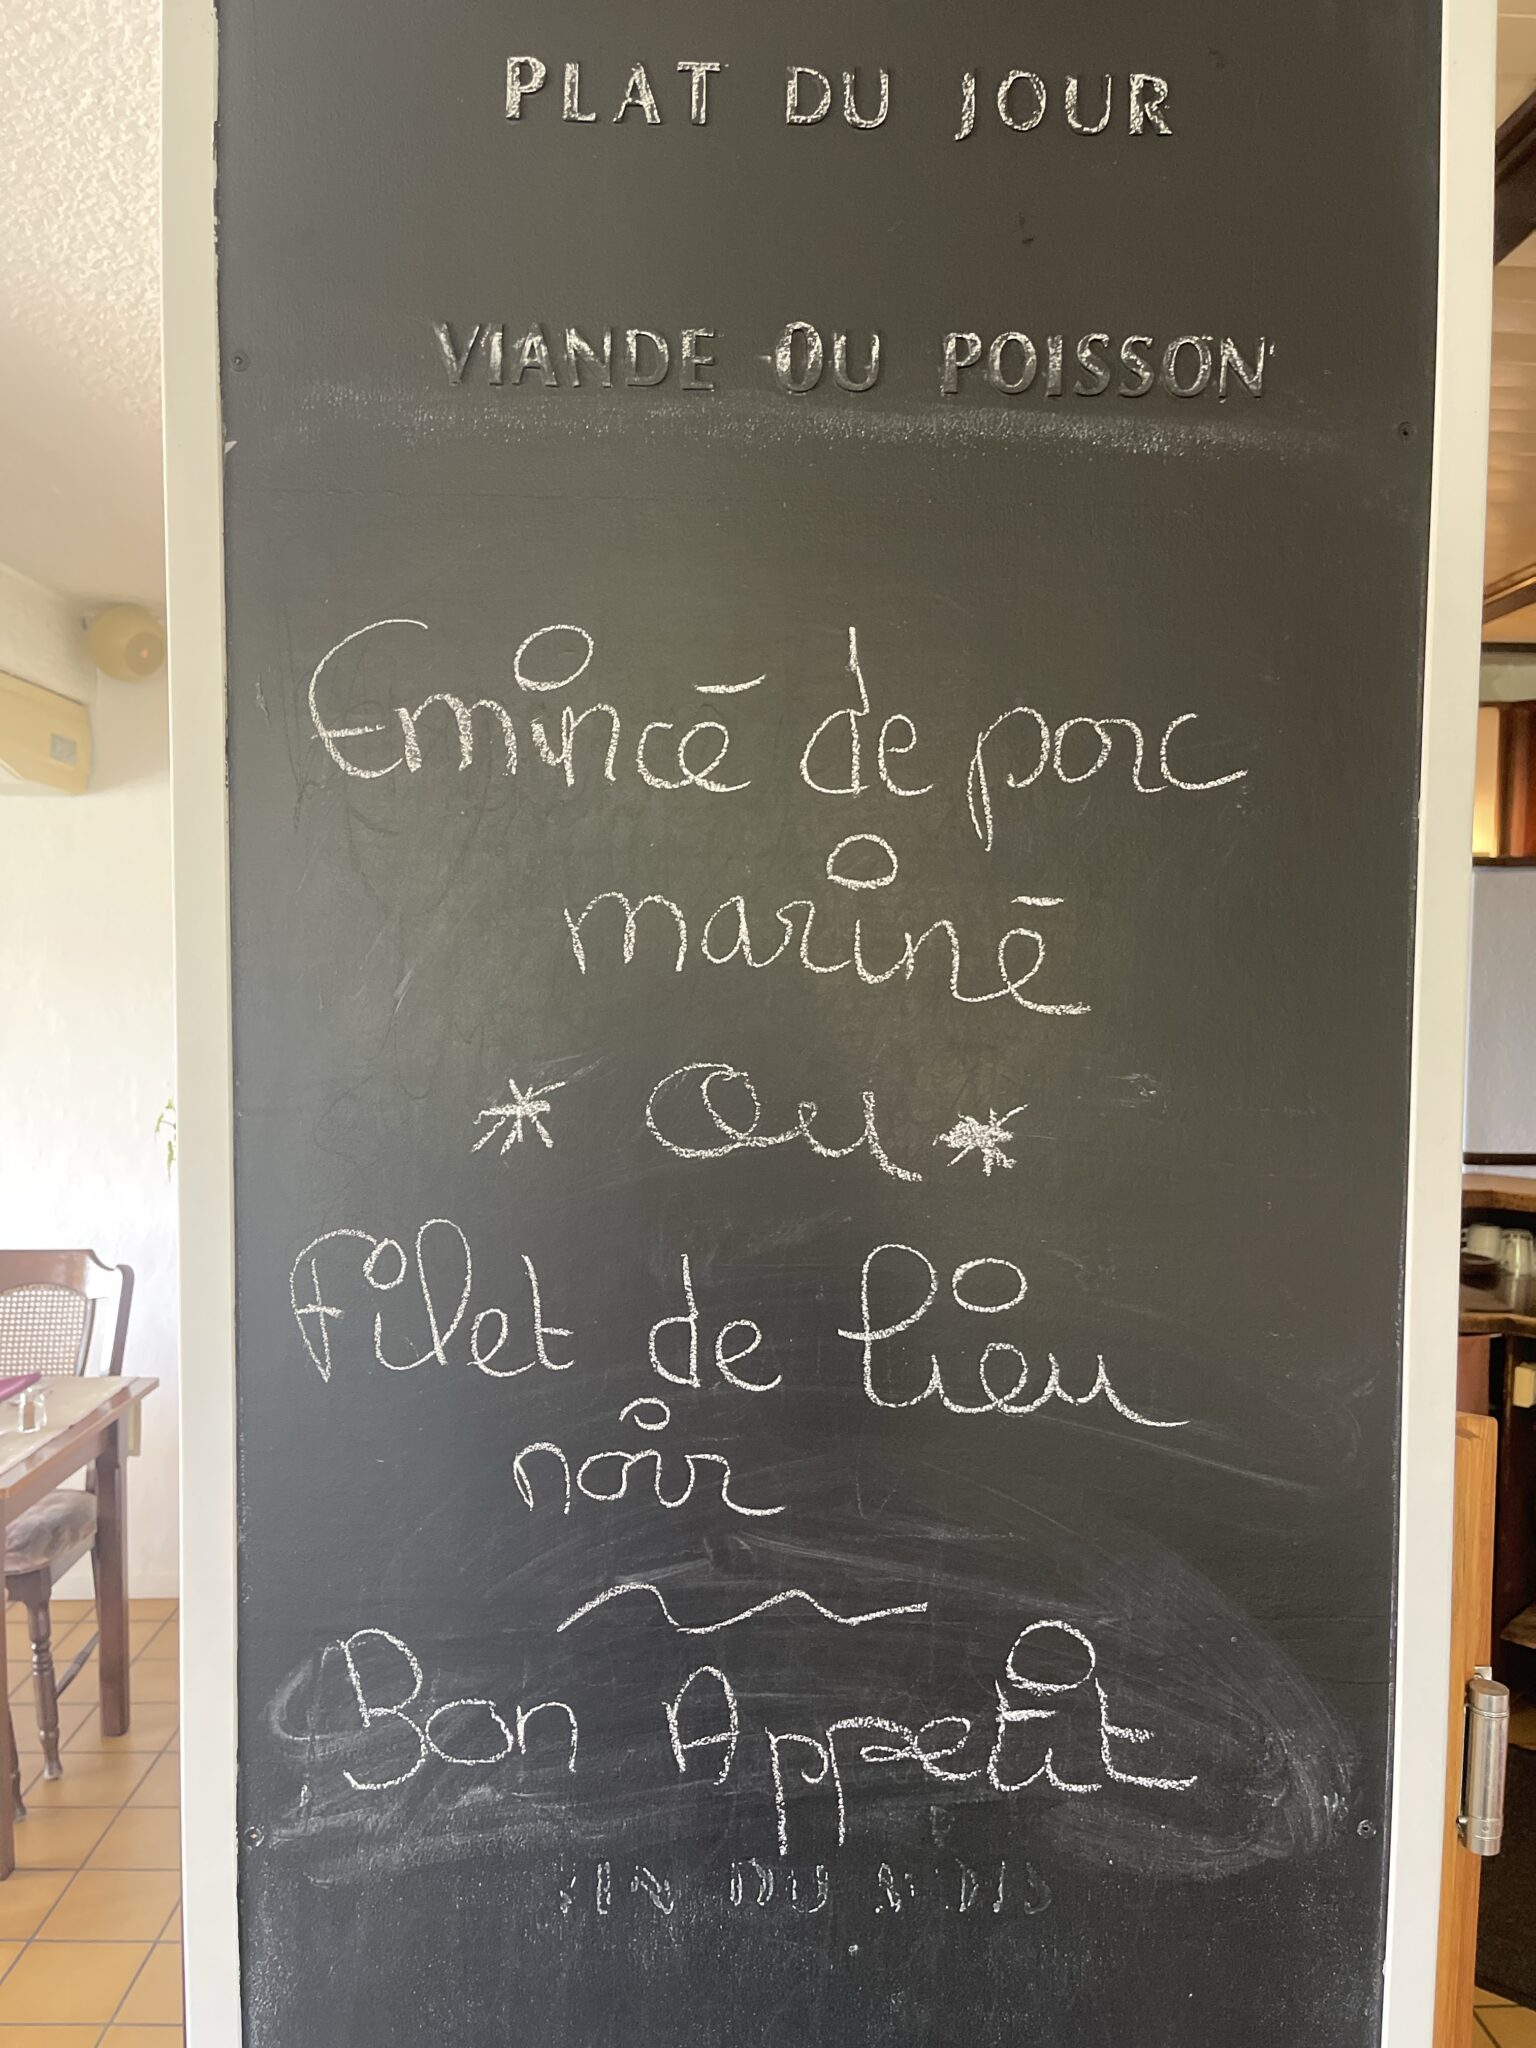 PLAT DU JOUR
VIANDE OU POISSON
Emincé de porc
mariné
* Ou *
Filet de lieu
noir
Bon Appetit
VIN DU MOIS